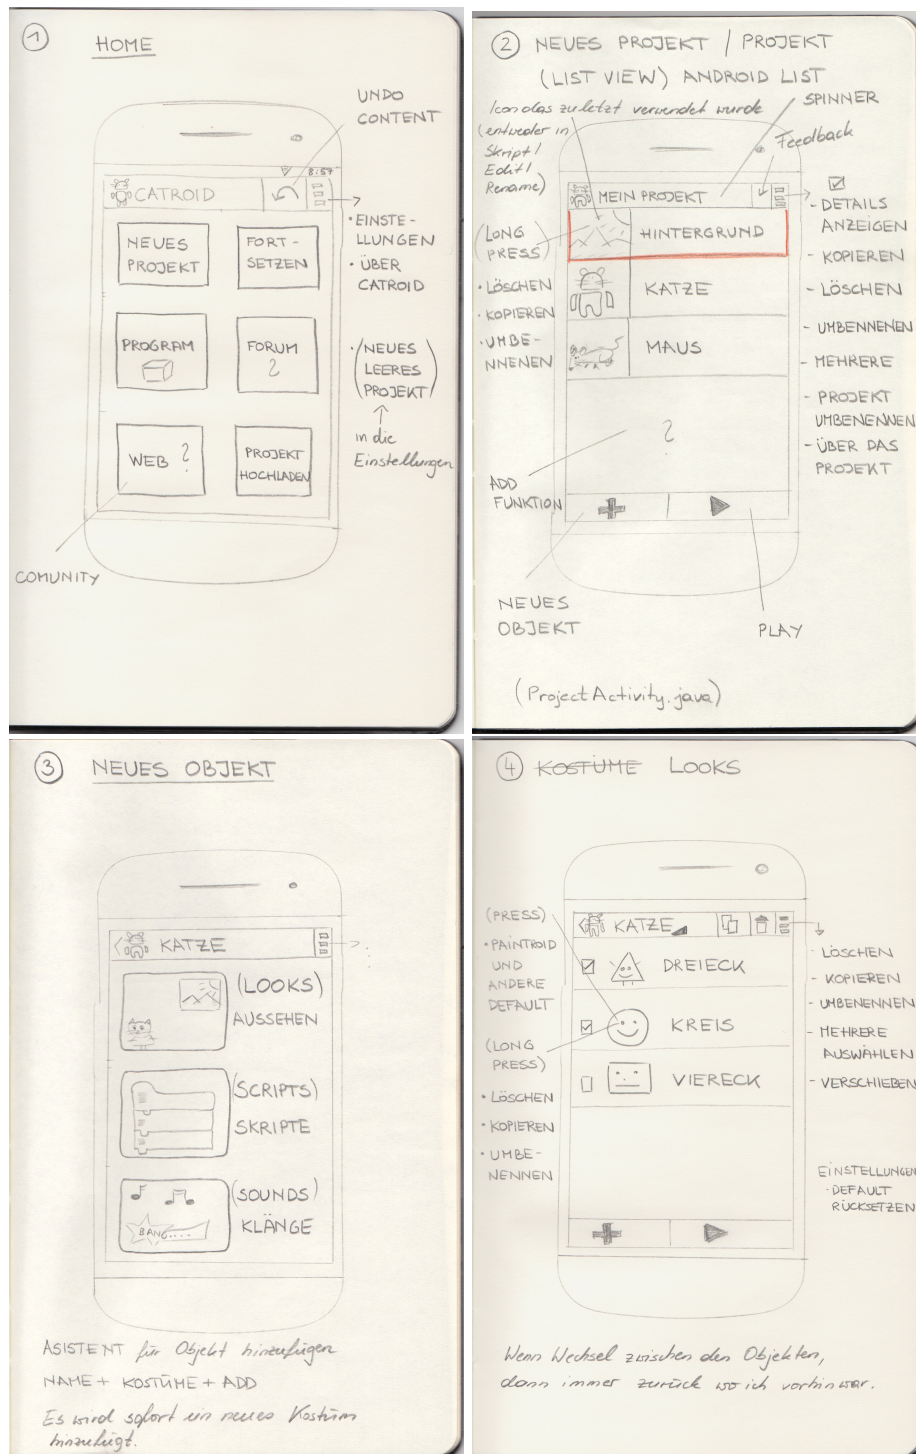 1 HOME
UNDO
CONTENT
8:57
CATROID
NEUES
PROJEKT
FORT-
SETZEN
PROGRAM
FORUM
?
WEB ?
PROJEKT
HOCHLADEN
• EINSTE-
LLUNGEN
• ÜBER
CATROID
• (NEUES
LEERES
PROJEKT)
in die
Einstellungen
COMUNITY
2 NEUES PROJEKT / PROJEKT
(LIST VIEW) ANDROID LIST
Icon das zuletzt verwendet wurde
(entweder in
Skript /
Edit /
Rename)
SPINNER
Feedback
MEIN PROJEKT
HINTERGRUND
KATZE
MAUS
?
(LONG
PRESS)
• LÖSCHEN
• KOPIEREN
• UMBE-
NNENEN
ADD
FUNKTION
- DETAILS
ANZEIGEN
- KOPIEREN
- LÖSCHEN
- UMBENNENEN
- MEHRERE
- PROJEKT
UMBENENNEN
- ÜBER DAS
PROJEKT
NEUES
OBJEKT
PLAY
(ProjectActivity.java)
3 NEUES OBJEKT
< KATZE
(LOOKS)
AUSSEHEN
(SCRIPTS)
SKRIPTE
(SOUNDS)
KLÄNGE
BANG....
ASISTENT für Objekt hinzufügen
NAME + KOSTÜME + ADD
Es wird sofort ein neues Kostüm
hinzufügt.
4 KOSTÜME LOOKS
< KATZE
DREIECK
KREIS
VIERECK
(PRESS)
• PAINTROID
UND
ANDERE
DEFAULT
(LONG
PRESS)
• LÖSCHEN
• KOPIEREN
• UMBE-
NENNEN
- LÖSCHEN
- KOPIEREN
- UMBENENNEN
- MEHRERE
AUSWÄHLEN
- VERSCHIEBEN
EINSTELLUNGEN
- DEFAULT
RÜCKSETZEN
Wenn Wechsel zwischen den Objekten,
dann immer zurück wo ich vorhin war.